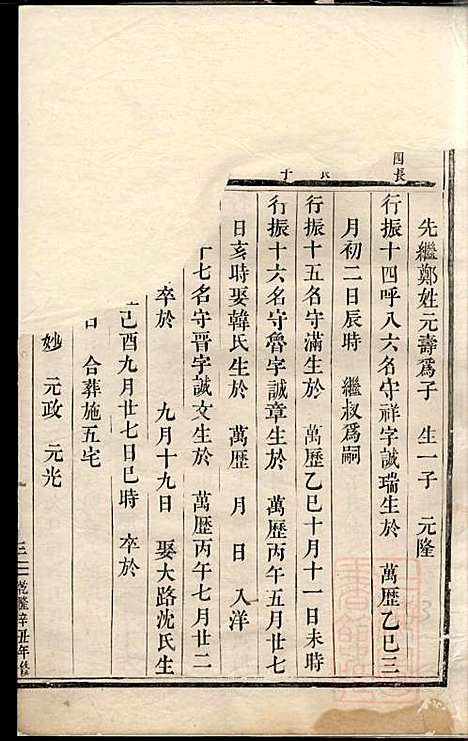 四長
先繼鄭姓元壽爲子 生一子 元隆
行振十四呼八六名守祥字誠瑞生於 萬歷乙巳三
月初二日辰時 繼叔爲嗣
行振十五名守滿生於 萬歷乙巳十月十一日未時
行振十六名守魯字誠章生於 萬歷丙午五月廿七
日亥時娶韓氏生於 萬歷 月 日 入洋
七名守晋字誠文生於 萬歷丙午七月廿二
卒於 九月十九日 娶大路沈氏生
己酉九月廿七日巳時 卒於
日 合葬施五宅
妙 元政 元光
乾隆辛丑年修